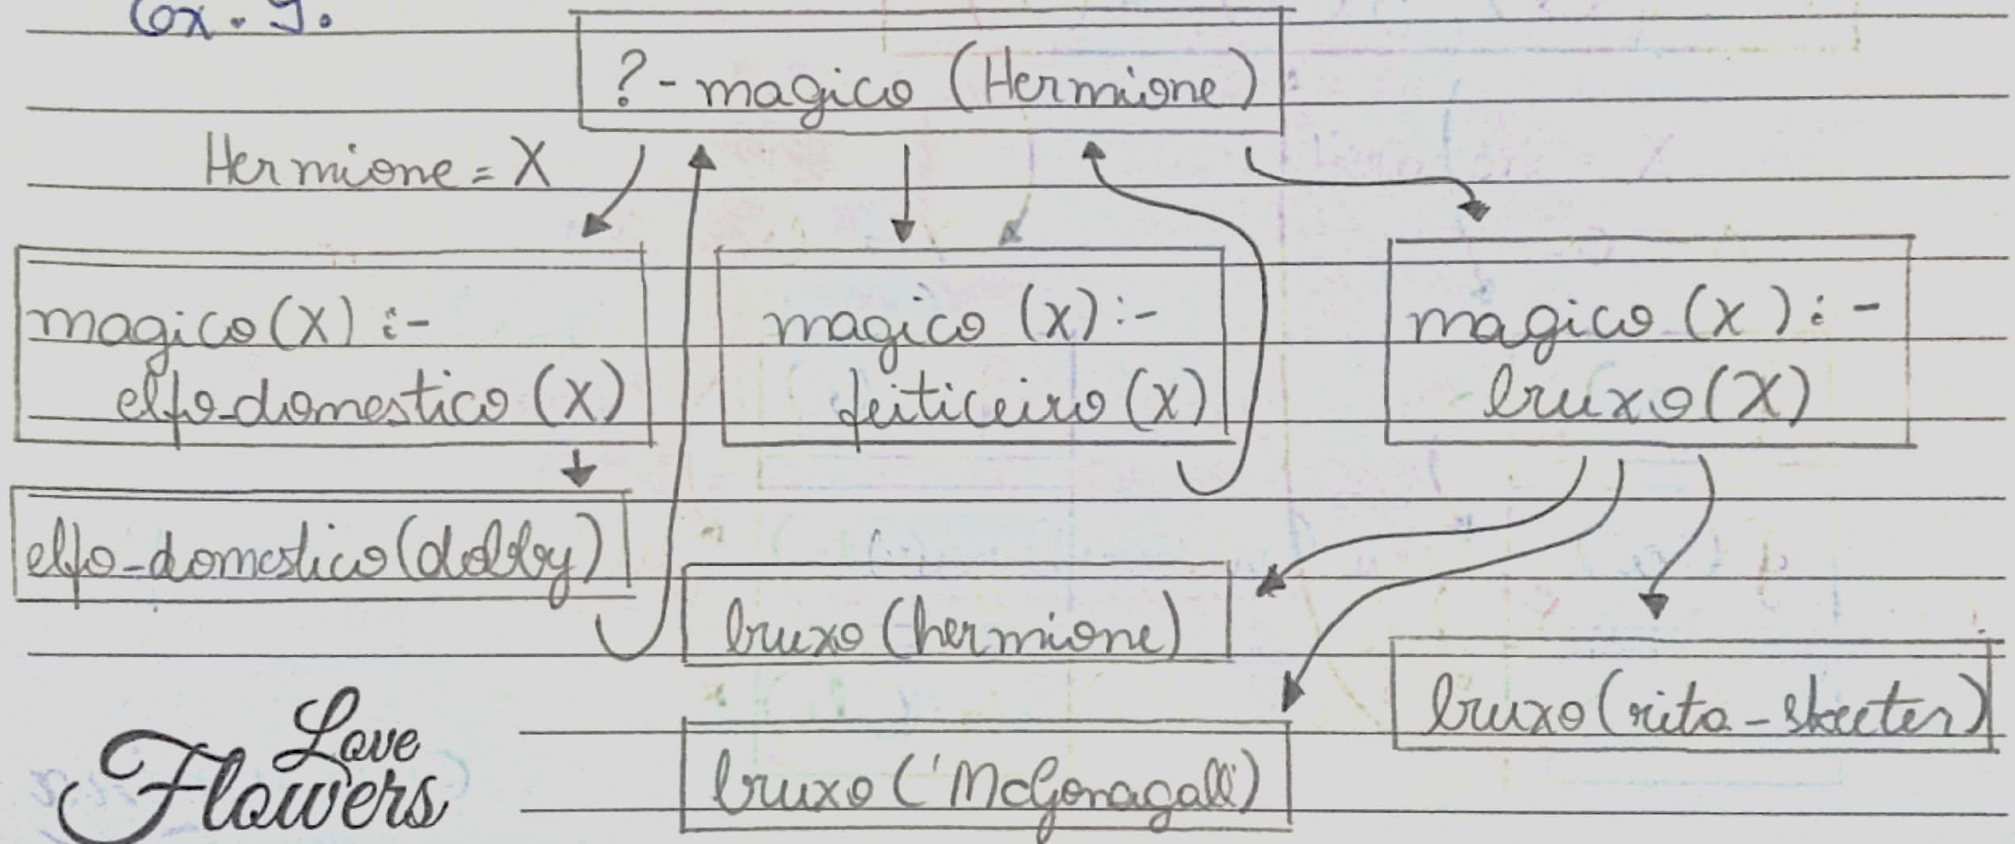 Ex. 9.
?- magico (Hermione)
Hermione = X
magico (X) :-
elfo-domestico (X)
magico (X) :-
feiticeiro (X)
magico (X) :-
bruxo (X)
elfo-domestico (dobby)
bruxo (hermione)
bruxo (rita-skeeter)
bruxo ('McGonagall')
Love
Flowers